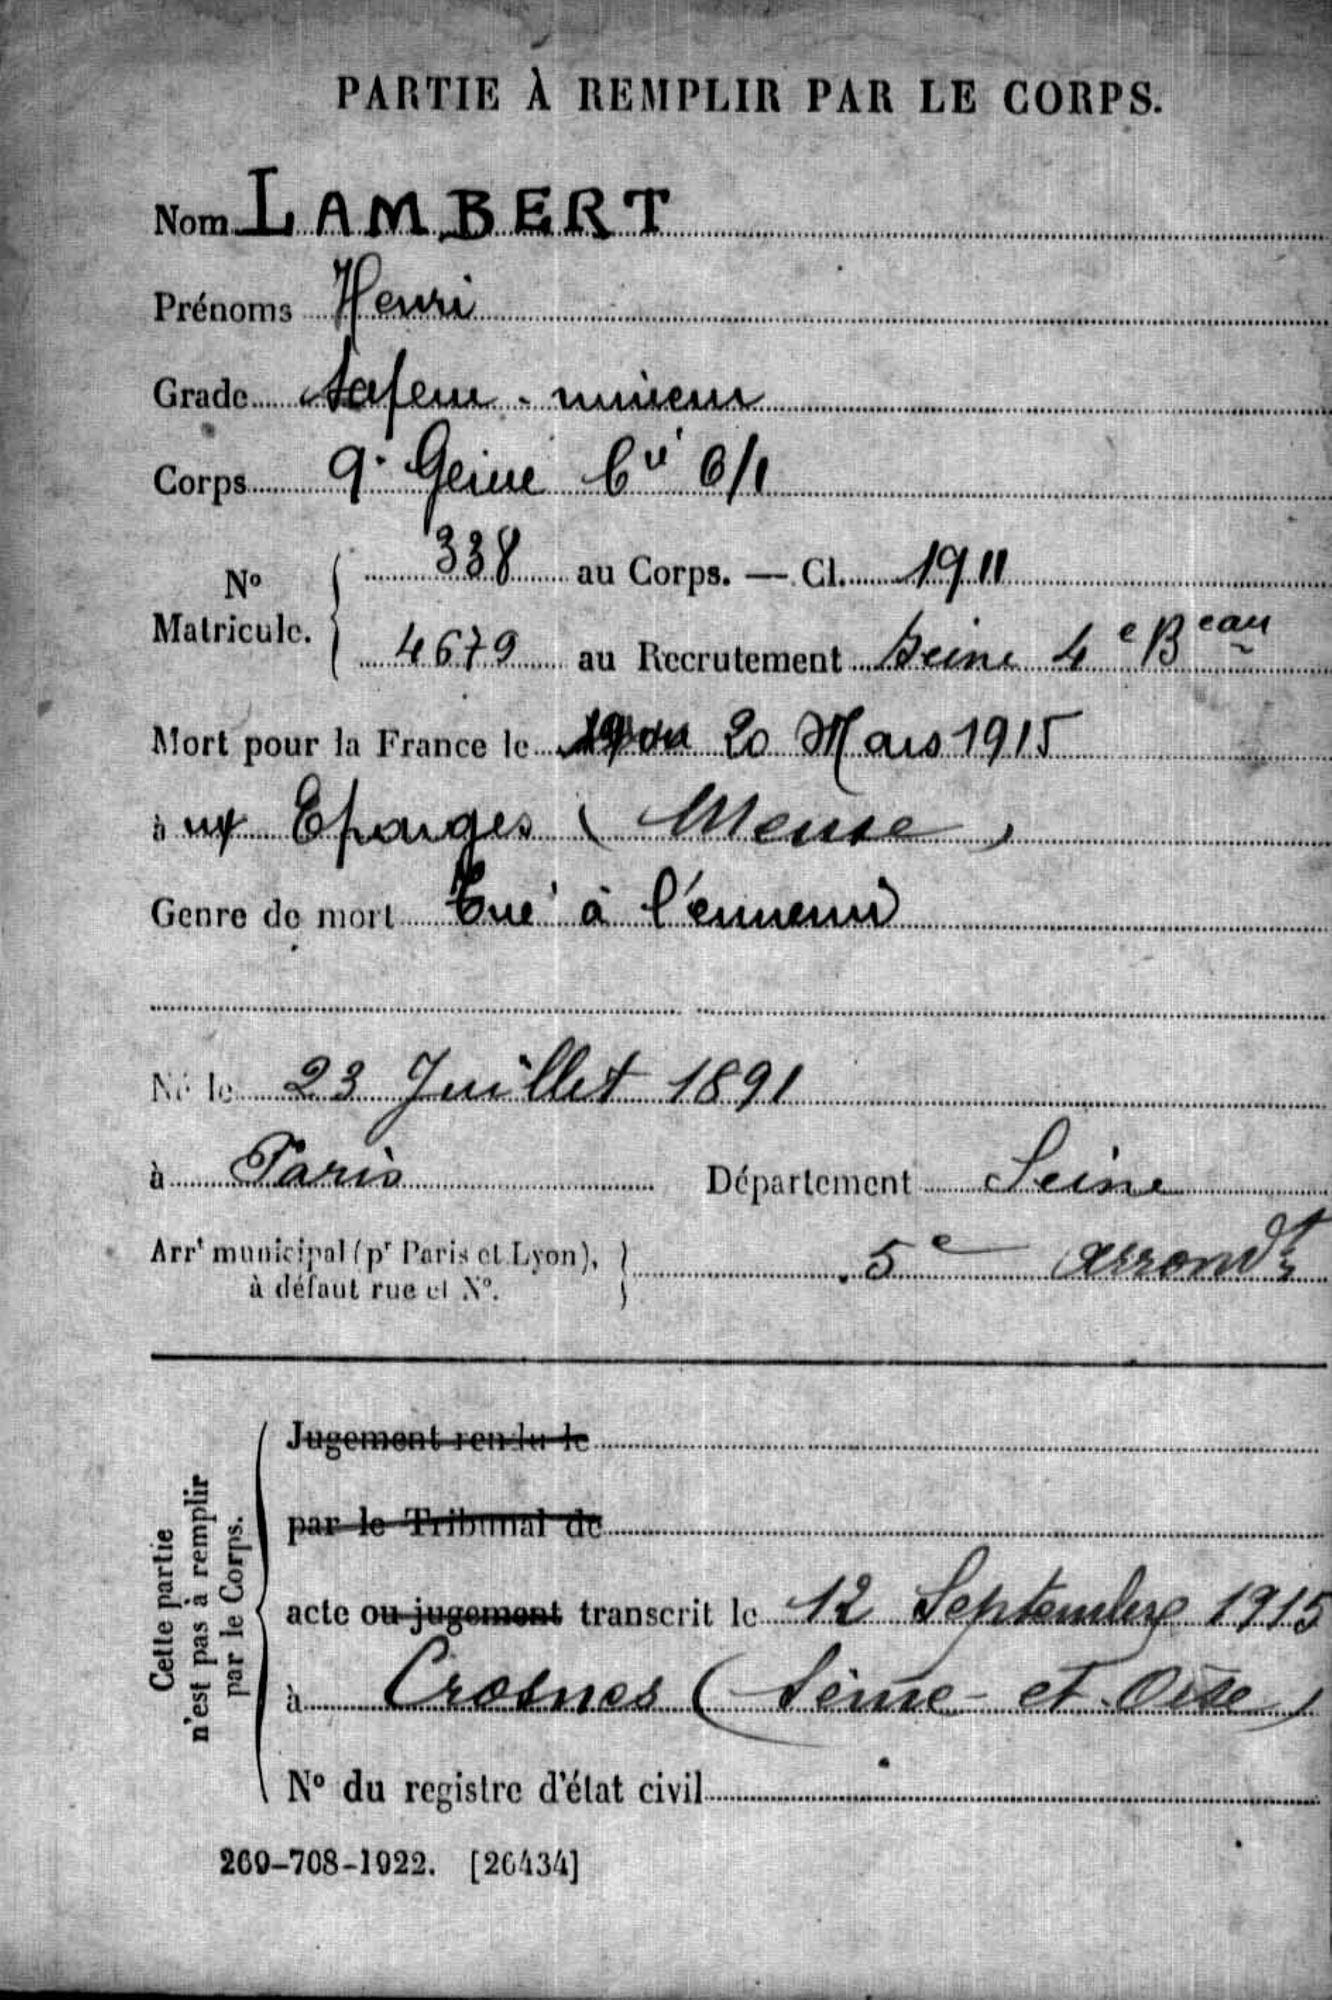 PARTIE À REMPLIR PAR LE CORPS.
Nom LAMBERT
Prénoms Henri
Grade Sapeur-mineur
Corps 9e Génie Cie 6/1
No Matricule. 338 au Corps. — Cl. 1911
4679 au Recrutement Seine 4e Beau
Mort pour la France le 19 ou 20 Mars 1915
à ux Eparges (Meuse)
Genre de mort Tué à l'ennemi
Né le 23 Juillet 1891
à Paris Département Seine
Arrt municipal (pr Paris et Lyon), 5e arrondt
à défaut rue et No.
Cette partie
n'est pas à remplir
par le Corps.
Jugement rendu le
par le Tribunal de
acte ou jugement transcrit le 12 Septembre 1915
à Crosnes (Seine-et-Oise)
No du registre d'état civil
269-708-1922. [26434]